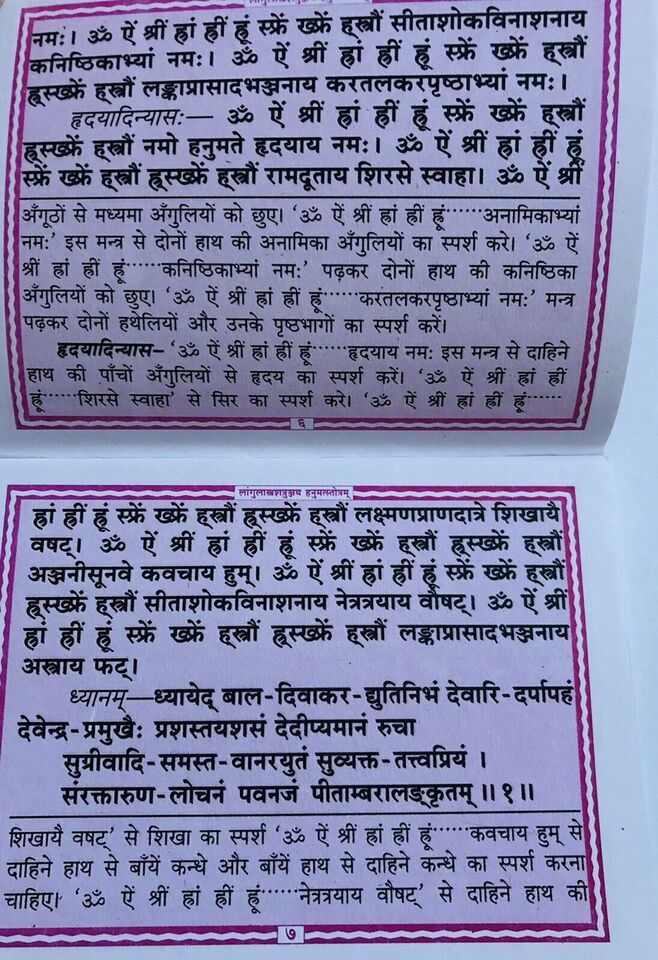 लांगुलास्त्रशत्रुञ्जय हनुमत्स्तोत्रम्
नमः। ॐ ऐं श्रीं ह्रां ह्रीं ह्रूं स्फ्रें ख्फ्रें ह्स्त्रौं सीताशोकविनाशनाय
कनिष्ठिकाभ्यां नमः। ॐ ऐं श्रीं ह्रां ह्रीं ह्रूं स्फ्रें ख्फ्रें ह्स्त्रौं
ह्स्ख्फ्रें ह्स्त्रौं लङ्काप्रासादभञ्जनाय करतलकरपृष्ठाभ्यां नमः।
हृदयादिन्यासः— ॐ ऐं श्रीं ह्रां ह्रीं ह्रूं स्फ्रें ख्फ्रें ह्स्त्रौं
ह्स्ख्फ्रें ह्स्त्रौं नमो हनुमते हृदयाय नमः। ॐ ऐं श्रीं ह्रां ह्रीं ह्रूं
स्फ्रें ख्फ्रें ह्स्त्रौं ह्स्ख्फ्रें ह्स्त्रौं रामदूताय शिरसे स्वाहा। ॐ ऐं श्रीं
अँगूठों से मध्यमा अँगुलियों को छुए। ‘ॐ ऐं श्रीं ह्रां ह्रीं ह्रूं……अनामिकाभ्यां
नमः’ इस मन्त्र से दोनों हाथ की अनामिका अँगुलियों का स्पर्श करे। ‘ॐ ऐं
श्रीं ह्रां ह्रीं ह्रूं……कनिष्ठिकाभ्यां नमः’ पढ़कर दोनों हाथ की कनिष्ठिका
अँगुलियों को छुए। ‘ॐ ऐं श्रीं ह्रां ह्रीं ह्रूं……करतलकरपृष्ठाभ्यां नमः’ मन्त्र
पढ़कर दोनों हथेलियों और उनके पृष्ठभागों का स्पर्श करें।
हृदयादिन्यास– ‘ॐ ऐं श्रीं ह्रां ह्रीं ह्रूं……हृदयाय नमः इस मन्त्र से दाहिने
हाथ की पाँचों अँगुलियों से हृदय का स्पर्श करें। ‘ॐ ऐं श्रीं ह्रां ह्रीं
ह्रूं……शिरसे स्वाहा’ से सिर का स्पर्श करे। ‘ॐ ऐं श्रीं ह्रां ह्रीं ह्रूं……
६
लांगुलास्त्रशत्रुञ्जय हनुमत्स्तोत्रम्
ह्रां ह्रीं ह्रूं स्फ्रें ख्फ्रें ह्स्त्रौं ह्स्ख्फ्रें ह्स्त्रौं लक्ष्मणप्राणदात्रे शिखायै
वषट्। ॐ ऐं श्रीं ह्रां ह्रीं ह्रूं स्फ्रें ख्फ्रें ह्स्त्रौं ह्स्ख्फ्रें ह्स्त्रौं
अञ्जनीसूनवे कवचाय हुम्। ॐ ऐं श्रीं ह्रां ह्रीं ह्रूं स्फ्रें ख्फ्रें ह्स्त्रौं
ह्स्ख्फ्रें ह्स्त्रौं सीताशोकविनाशनाय नेत्रत्रयाय वौषट्। ॐ ऐं श्रीं
ह्रां ह्रीं ह्रूं स्फ्रें ख्फ्रें ह्स्त्रौं ह्स्ख्फ्रें ह्स्त्रौं लङ्काप्रासादभञ्जनाय
अस्त्राय फट्।
ध्यानम्—ध्यायेद् बाल-दिवाकर-द्युतिनिभं देवारि-दर्पापहं
देवेन्द्र-प्रमुखैः प्रशस्तयशसं देदीप्यमानं रुचा
सुग्रीवादि-समस्त-वानरयुतं सुव्यक्त-तत्त्वप्रियं ।
संरक्तारुण-लोचनं पवनजं पीताम्बरालङ्कृतम् ॥१॥
शिखायै वषट्’ से शिखा का स्पर्श ‘ॐ ऐं श्रीं ह्रां ह्रीं ह्रूं……कवचाय हुम् से
दाहिने हाथ से बाँयें कन्धे और बाँयें हाथ से दाहिने कन्धे का स्पर्श करना
चाहिए। ‘ॐ ऐं श्रीं ह्रां ह्रीं ह्रूं……नेत्रत्रयाय वौषट्’ से दाहिने हाथ की
७